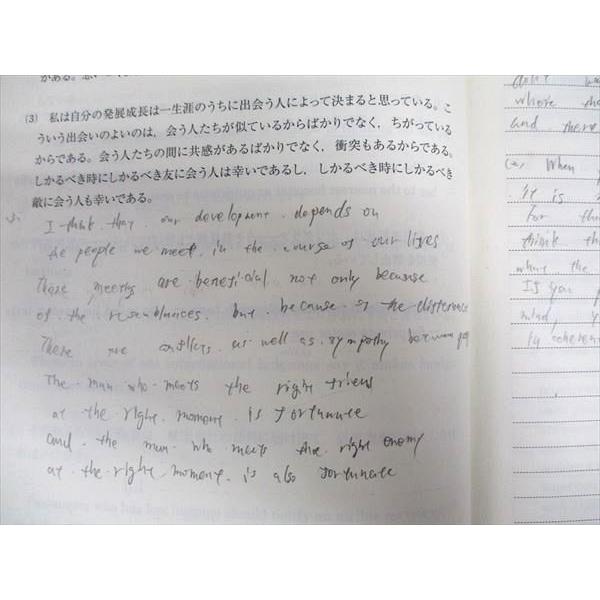 がある。
(3) 私は自分の発展成長は一生涯のうちに出会う人によって決まると思っている。こ
ういう出会いのよいのは，会う人たちが似ているからばかりでなく，ちがっている
からである。会う人たちの間に共感があるばかりでなく，衝突もあるからである。
しかるべき時にしかるべき友に会う人は幸いであるし，しかるべき時にしかるべき
敵に会う人も幸いである。
I think that our development depends on
the people we meet in the course of our lives
These meetings are beneficial not only because
of the resemblances but because of the difference
There are conflicts as well as sympathy between
The man who meets the right friend
at the right moment is fortunate
and the man who meets the right enemy
at the right moment is also fortunate
where the
and there
(2) When
it is
for
think
where the
If you
mind, y